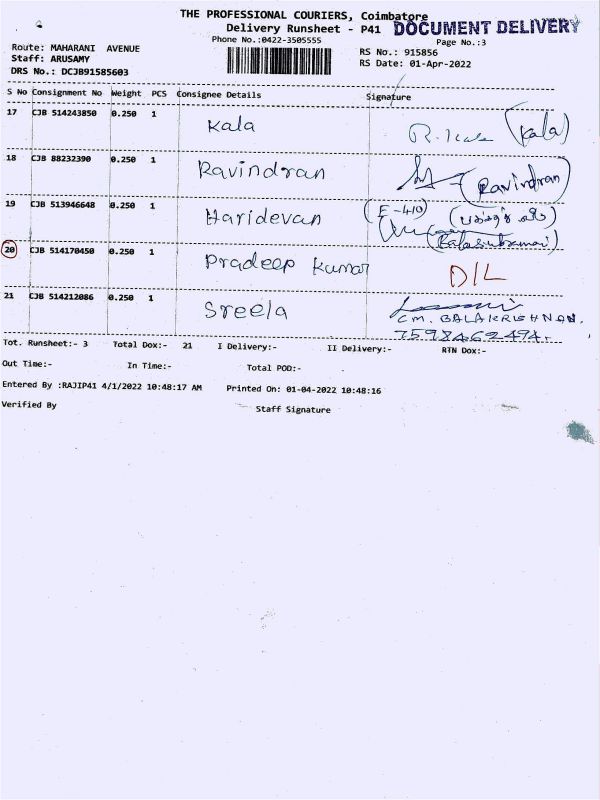 THE PROFESSIONAL COURIERS, Coimbatore
Delivery Runsheet - P41
DOCUMENT DELIVERY
Phone No.:0422-3505555
Page No.:3
Route: MAHARANI AVENUE
Staff: ARUSAMY
DRS No.: DCJB91585603
RS No.: 915856
RS Date: 01-Apr-2022
S No Consignment No Weight PCS Consignee Details Signature
17 CJB 514243850 0.250 1 Kala R. Kala (Kala)
18 CJB 88232390 0.250 1 Ravindran (Ravindran)
19 CJB 513946648 0.250 1 Haridevan (F-410)
(Balasubramani)
20 CJB 514170450 0.250 1 Pradeep Kumar D/L
21 CJB 514212086 0.250 1 Sreela
C.M. BALAKRISHNAN.
7598462494.
Tot. Runsheet:- 3 Total Dox:- 21 I Delivery:- II Delivery:- RTN Dox:-
Out Time:- In Time:- Total POD:-
Entered By :RAJIP41 4/1/2022 10:48:17 AM Printed On: 01-04-2022 10:48:16
Verified By Staff Signature